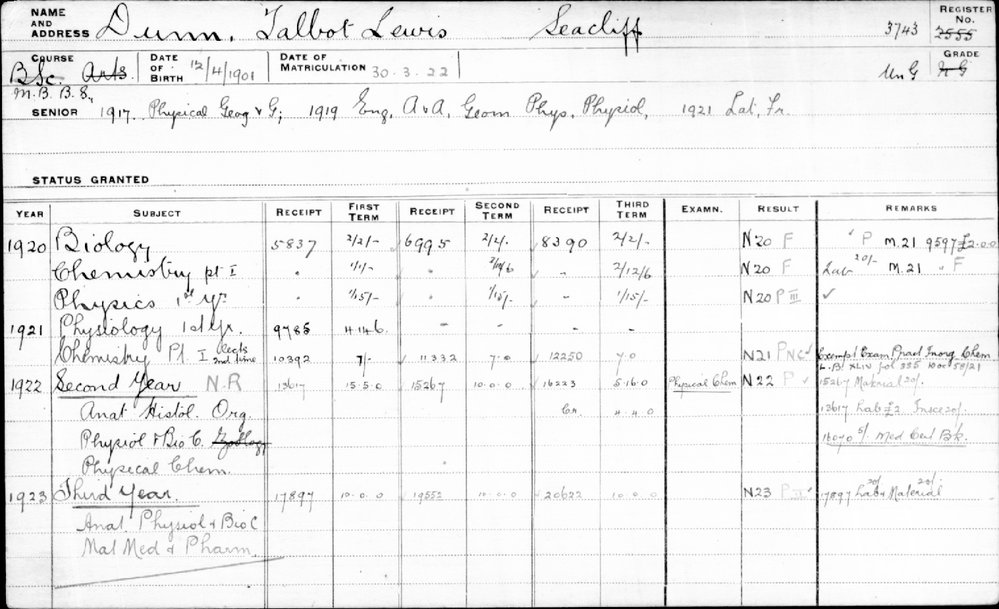 NAME AND ADDRESS Dunn, Talbot Lewis Seacliff 3743 REGISTER No. 2555
COURSE B.Sc. Arts DATE OF BIRTH 12/4/1901 DATE OF MATRICULATION 30.3.22 GRADE UnG
M.B. B.S.
SENIOR 1917. Physical Geog & G; 1919 Eng, A & A, Geom Phys, Physiol, 1921 Lat, Fr.
STATUS GRANTED
YEAR SUBJECT RECEIPT FIRST TERM RECEIPT SECOND TERM RECEIPT THIRD TERM EXAMN. RESULT REMARKS
1920 Biology 5837 2/2/- 6995 2/2/. 8390 2/2/- N20 F P M.21 9597 £2.0.0
Chemistry pt I " 1/1/- " - 2/12/6 N20 F Lab 20/- M.21 " F
Physics 1st Yr " 1/15/- " 1/15/- - 1/15/- N20 P III ✓
1921 Physiology 1st Yr. 9785 4.14.6. - - - -
Chemistry Pt. I 2nd time 10392 7/- 11332 7.0 12250 7.0 N21 P Exempt Exam Pract Inorg Chem
L.B. XLIV fol 355 10oc 58/21
1922 Second Year N.R 13617 15.5.0 15267 10.0.0 16223 5.16.0 Physical Chem N22 P ✓ 15267 Material 20/.
Anat Histol. Org. 4.4.0 13617 Lab £2 20/.
Physiol & Bio C. Zoology 5/. Med Cert Bk.
Physical Chem.
1923 Third Year. 17897 10.0.0 19552 10.0.0 20622 10.0.0 N23 P 17897 Lab 20/. & Material 20/.
Anat. Physiol & Bio C
Mat Med & Pharm.